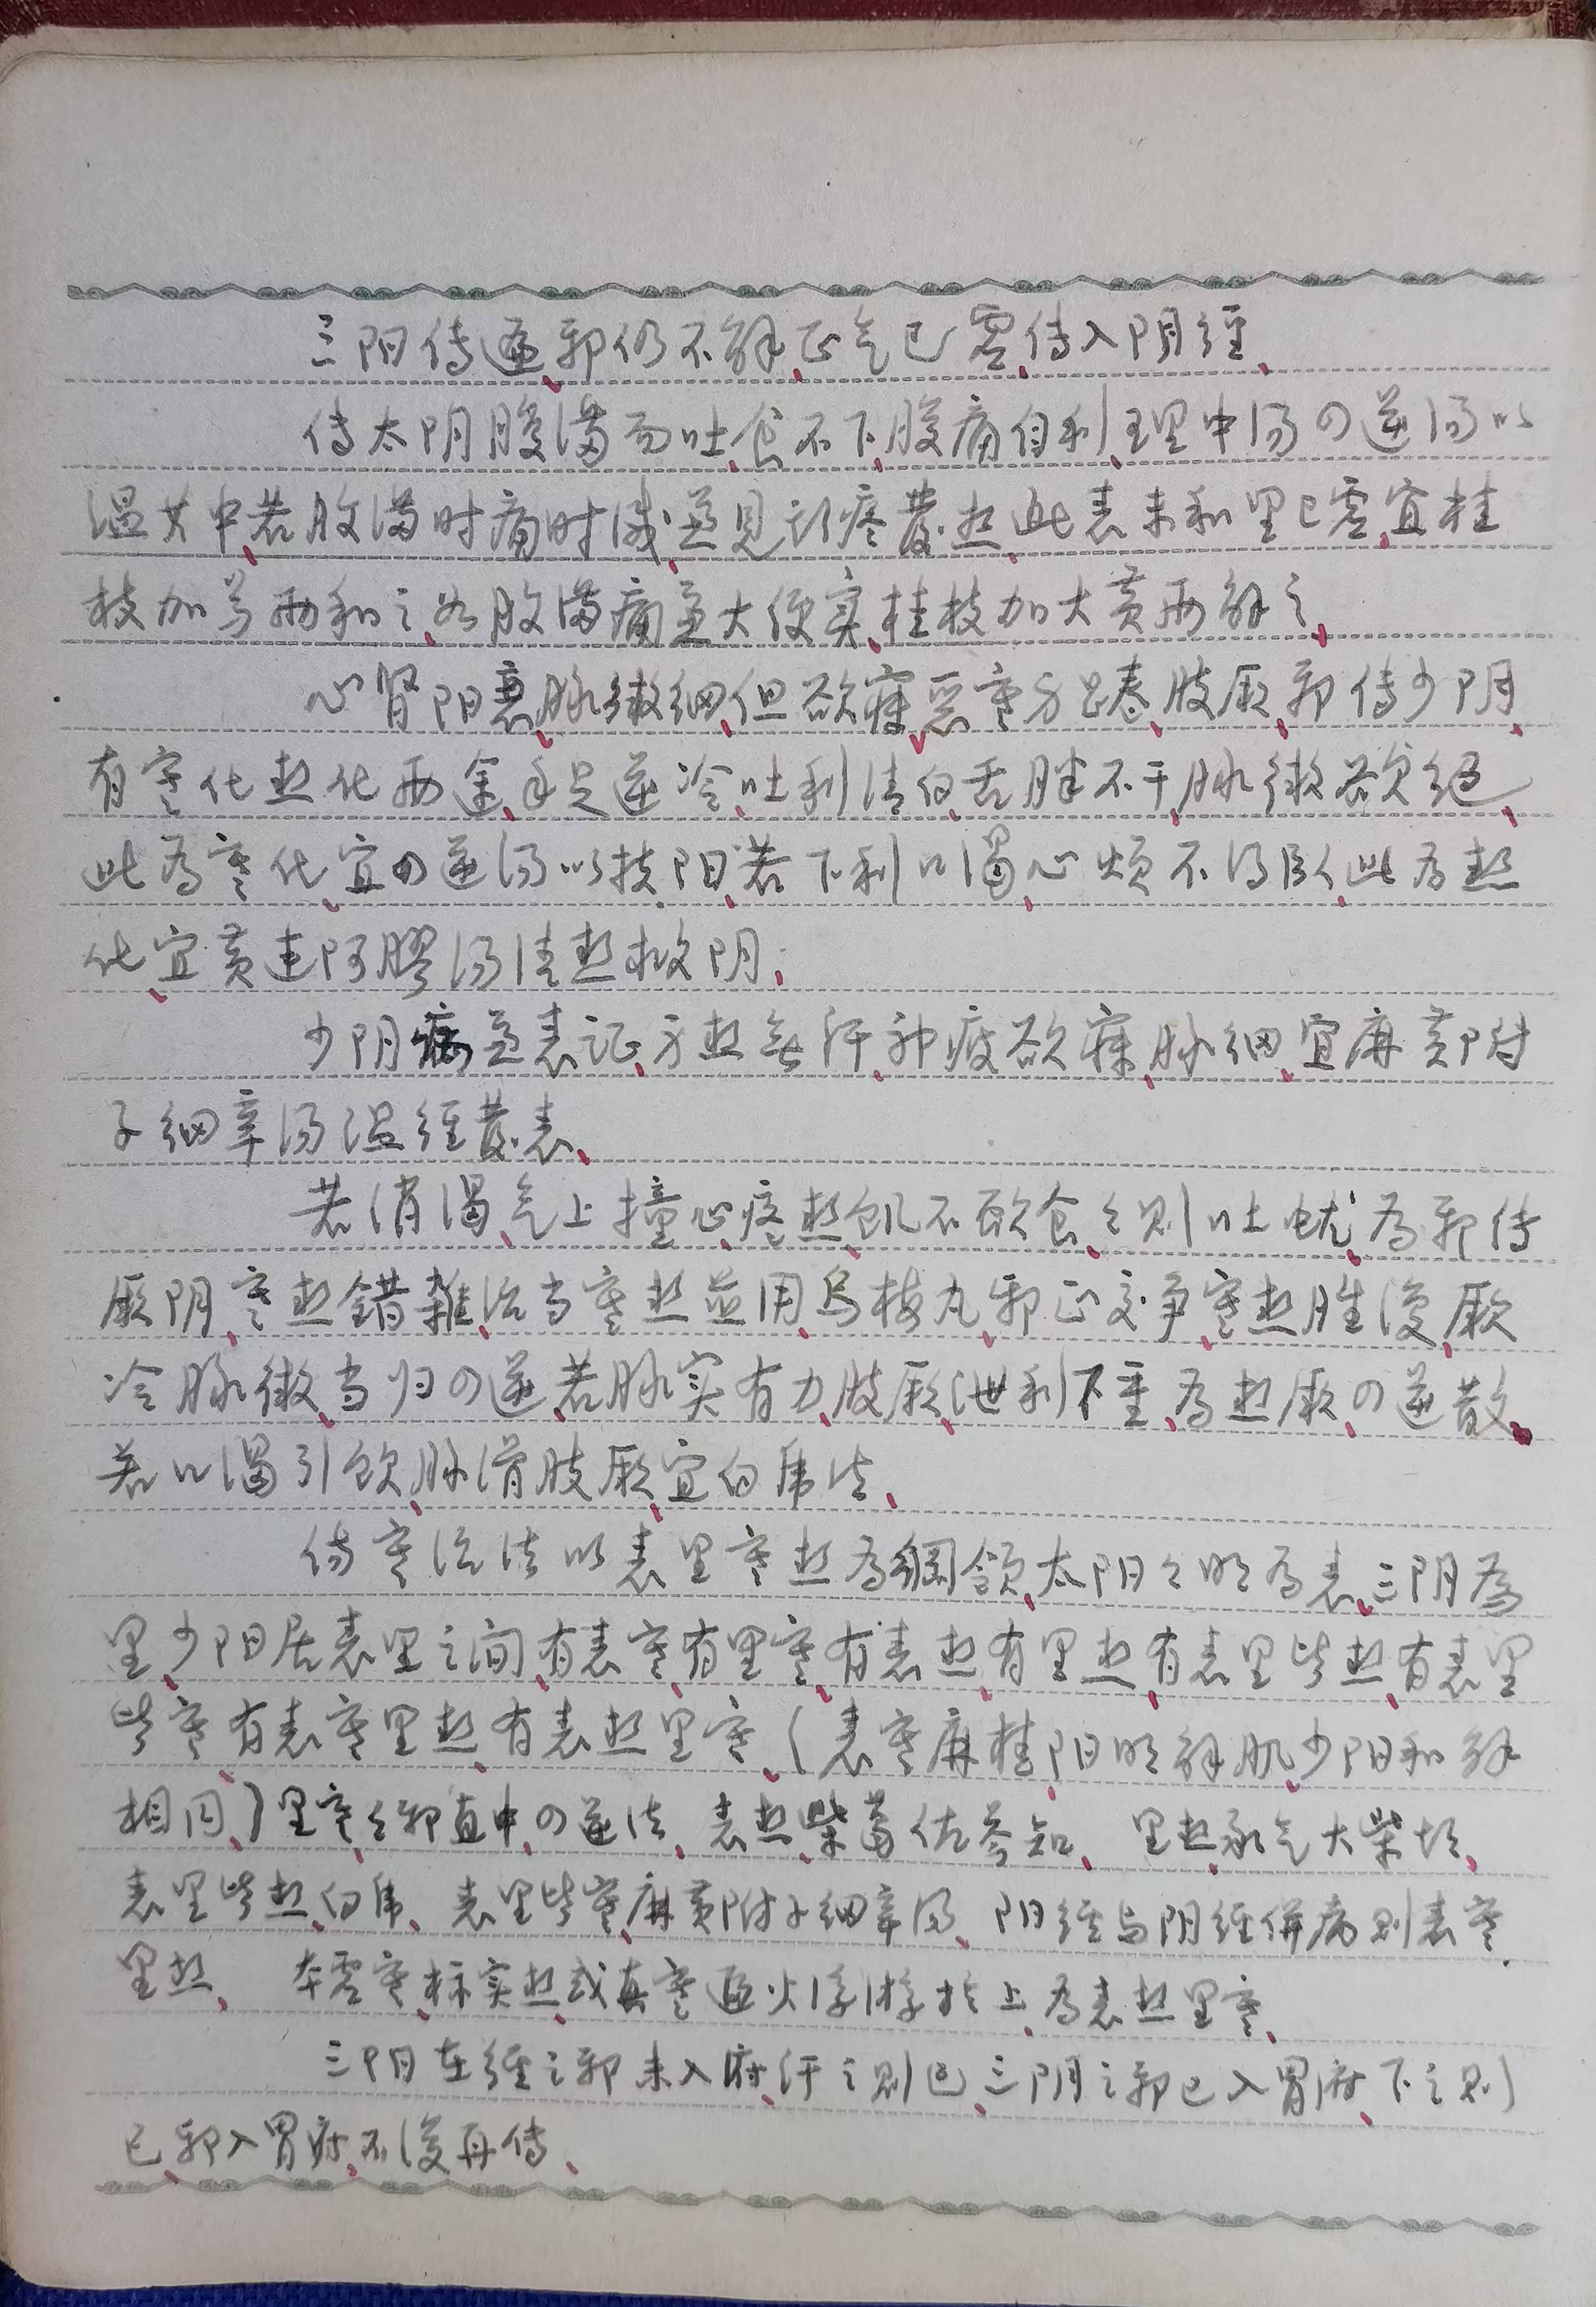 三阳传遍、邪仍不解、正气已虚、传入阴经、
传太阴腹满而吐、食不下、腹痛自利、理中汤四逆汤以
温其中、若腹满时痛时减、兼见头疼发热、此表未和里已虚、宜桂
枝加芍两和之、若腹满痛兼大便实、桂枝加大黄两解之、
心肾阳衰、脉微细、但欲寐、恶寒身踡、肢厥、邪传少阴、
有寒化热化两途、手足逆冷、吐利清白、舌胖不干、脉微欲绝、
此为寒化、宜四逆汤以扶阳、若下利口渴、心烦不得卧、此为热
化、宜黄连阿膠汤清热救阴、
少阴病兼表证、身热無汗、神疲欲寐、脉细、宜麻黄附
子细辛汤温经發表、
若消渴、气上撞心、疼热、飢不欲食、食则吐蚘、为邪传
厥阴、寒热錯雜、治当寒热並用、乌梅丸、邪正交争、寒热胜復、厥
冷脉微、当归四逆、若脉实有力、肢厥、泄利下重、为热厥、四逆散、
若口渴引饮、脉滑肢厥、宜白虎法、
伤寒治法以表里寒热为綱领、太阳阳明为表、三阴為
里、少阳居表里之间、有表寒、有里寒、有表热、有里热、有表里皆热、有表里
皆寒、有表寒里热、有表热里寒、(表寒麻桂、阳明解肌、少阳和解
相同、)里寒寒邪直中、四逆法、表热柴葛佐芩知、里热、承气大柴胡、
表里皆热、白虎、表里皆寒、麻黄附子细辛汤、阳经与阴经併病则表寒
里热、本虚寒、标实热、或真寒逼火浮游於上、为表热里寒、
三阴在经之邪未入府、汗之则已、三阴之邪已入胃府、下之则
已、邪入胃府、不復再传、